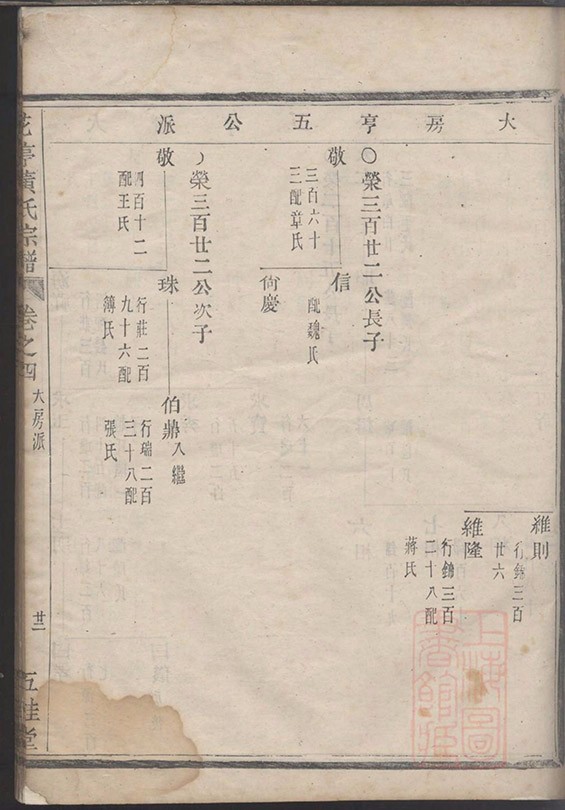 大房亨五公派
維則
行錦三百
廿六
維隆
行錦三百
二十八配
蔣氏
○榮三百廿二公長子
敬
三百六十
三配章氏
信
配魏氏
尙慶
榮三百廿二公次子
敬
四百十二
配王氏
珠
行莊二百
九十六配
傅氏
伯鼎入繼
行瑞二百
三十八配
張氏
花亭黃氏宗譜
卷之四
大房派
廿二
五桂堂
上海圖書館藏